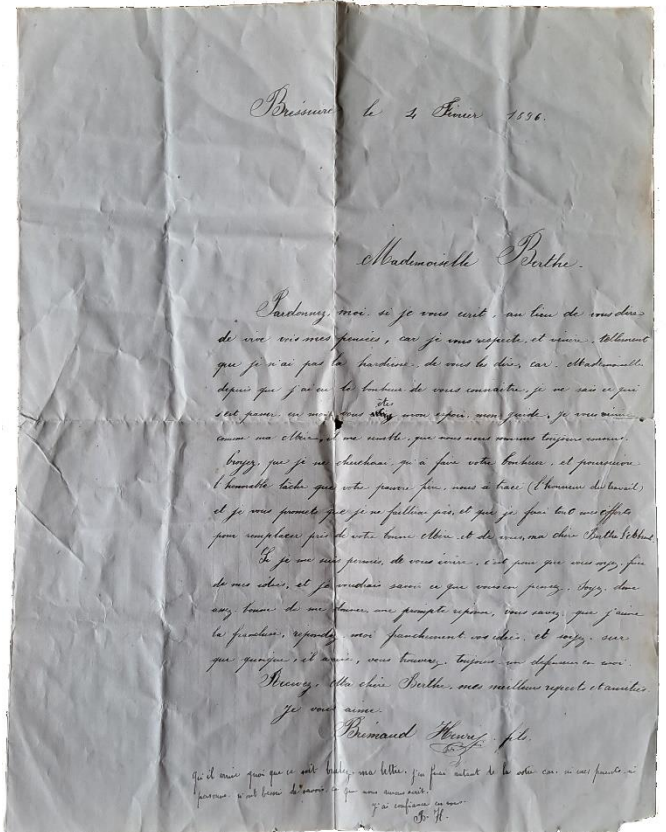 Bressuire le 4 Février 1896.
Mademoiselle Berthe.
Pardonnez, moi si je vous écrit, au lieu de vous dire
de vive vois mes pensées, car je vous respecte et tellement
que je n'ai pas la hardiesse de vous les dire, car Mademoiselle
depuis que j'ai eu le bonheur de vous connaitre, je ne sais ce qui
s'est passer en moi vous êtes mon espoir mon guide, je vous aime
comme ma Mère, il me semble que vous nous sommes toujours connu,
Croyez, que je ne chercherai qu'à faire votre bonheur, et poursuivre
l'honorable tâche que votre pauvre père nous a tracé (l'honneur du travail)
et je vous promets que je ne faillirai pas, et que je ferai tout mes efforts
pour remplacer près de votre bonne Mère et de vous, ma chère Berthe l'absent.
Si je me suis permis, de vous écrire, c'est pour que vous soyez fixée
de mes idées, et je voudrais savoir ce que vous en pensez. Soyez, donc
assez bonne de me donner une prompte réponse, vous savez que j'aime
la franchise, répondez, moi franchement vos idées, et soyez, sure
que quoique, il arrive, vous trouverez toujours un défenseur en moi.
Recevez, Ma chère Berthe, mes meilleurs respects et amitiés.
Je vous aime.
Brémaud Henry fils.
qu'il arrive quoi que ce soit brulez ma lettre, j'en ferai autant de la votre car ni mes parents, ni
personne n'ont besoin de savoir ce que nous
j'ai confiance en vous
B. H.